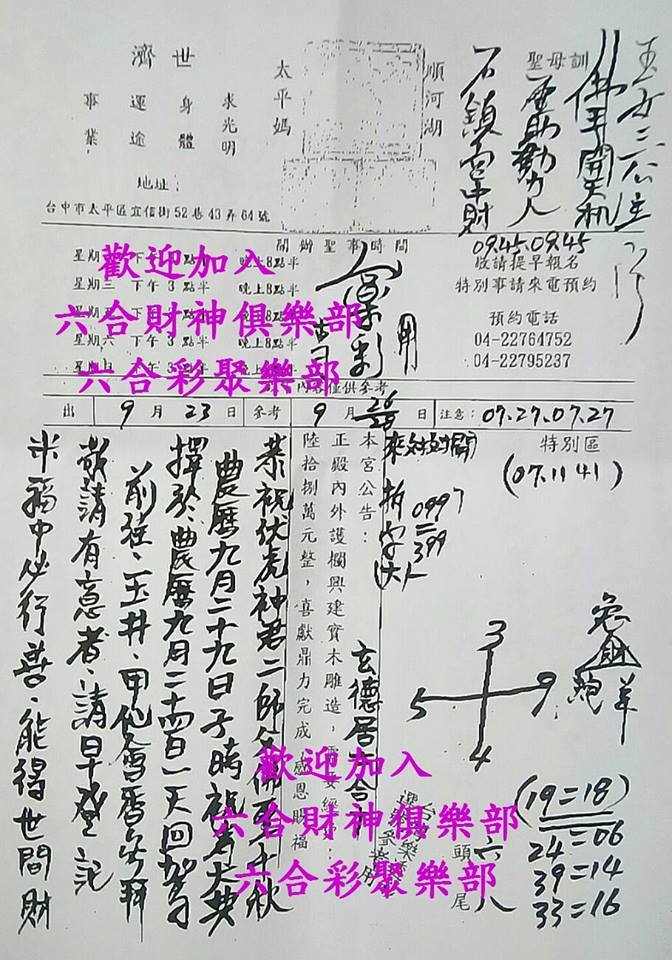 順河湖
太平媽
濟世
求光明
身體
運途
事業
地址：
台中市太平區宜信街52巷43弄64號
聖母訓
佛手開玉机
石鎮宮中財
09.45.09.45
開辦聖事時間
敬請提早報名
特別事請來電預約
預約電話
04-22764752
04-22795237
星期三 下午3點半 晚上8點半
星期六 下午3點半 晚上8點半
歡迎加入
六合財神俱樂部
六合彩聚樂部
內容僅供參考
出 9月23日 參考 9月 26 日 注意： 07.27.07.27
特別區
(07.11 41)
本宮公告：
正殿內外護欄興建實木雕造，需要經費：
陸拾捌萬元整，喜獻鼎力完成，感恩賜福
0997
399
恭祝伏虎神君二師父佛聖千秋
農曆九月二十九日子時祝壽大典
擇於農曆九月二十四日一天回駕
敬請有意者、請早登記
求福中必行善、能得世間財
3
5 9
4
兔 財 羊
頭 六
尾 八
(19=18)
24=06
39=14
33=16
歡迎加入
六合財神俱樂部
六合彩聚樂部